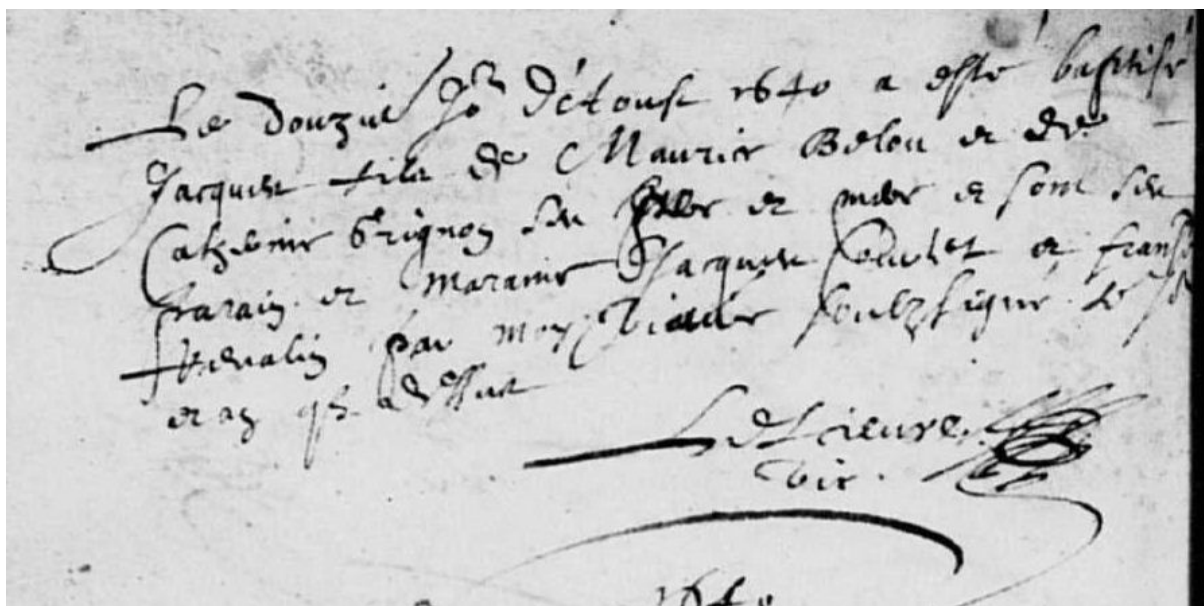 Le douziè Jor d'étoust 1640 a esté baptisé
Jacques fils de Maurice Belou et de
Catherine Grignon ses pere et mere et sont ses
parain et maraine Jacques et fransoi
par moy Vicaire soubzsigné le Jor
et an qz dessus
Lelieure
Vic.
1640